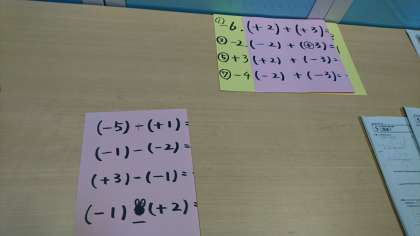 ① 6. (+2)+(+3)=
② -2. (-2) + (+3)=
⑤ +3 (+2) + (-3)=
⑦ -4 (-2) + (-3)=
(-5)-(+1)=
(-1)-(-2)=
(+3)-(-1)=
(-1) (+2)=